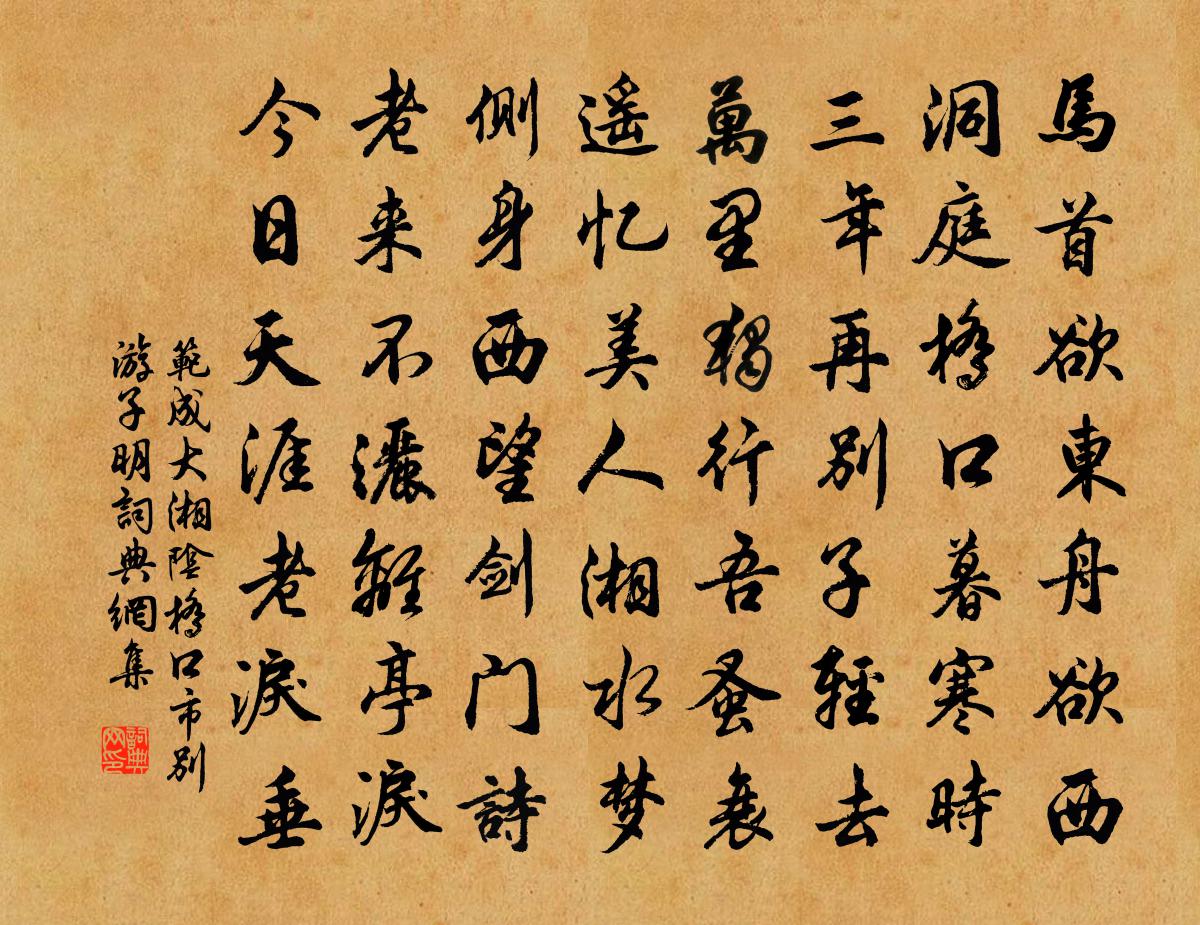 馬首欲東舟欲西
洞庭橋口暮寒時
三年再別子輕去
萬里獨行吾蚤衰
遥忆美人湘水梦
側身西望剑门詩
老来不灑離亭淚
今日天涯老淚垂
範成大湘陰橋口市别
游子明詞典網集
詞典网印